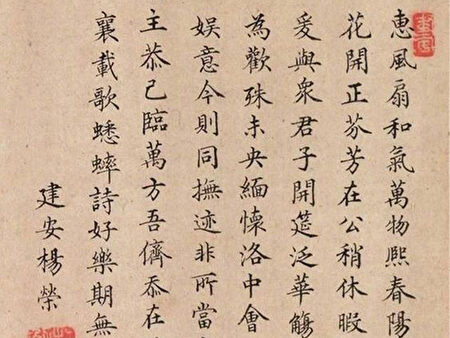 惠風扇和氣萬物熙春陽
花開正芬芳在公稍休暇
爰與衆君子開筵泛華觴
為歡殊未央緬懷洛中會
娛意今則同撫迹非所當
主恭己臨萬方吾儕忝在
襄載歌蟋蟀詩好樂期無
建安楊榮